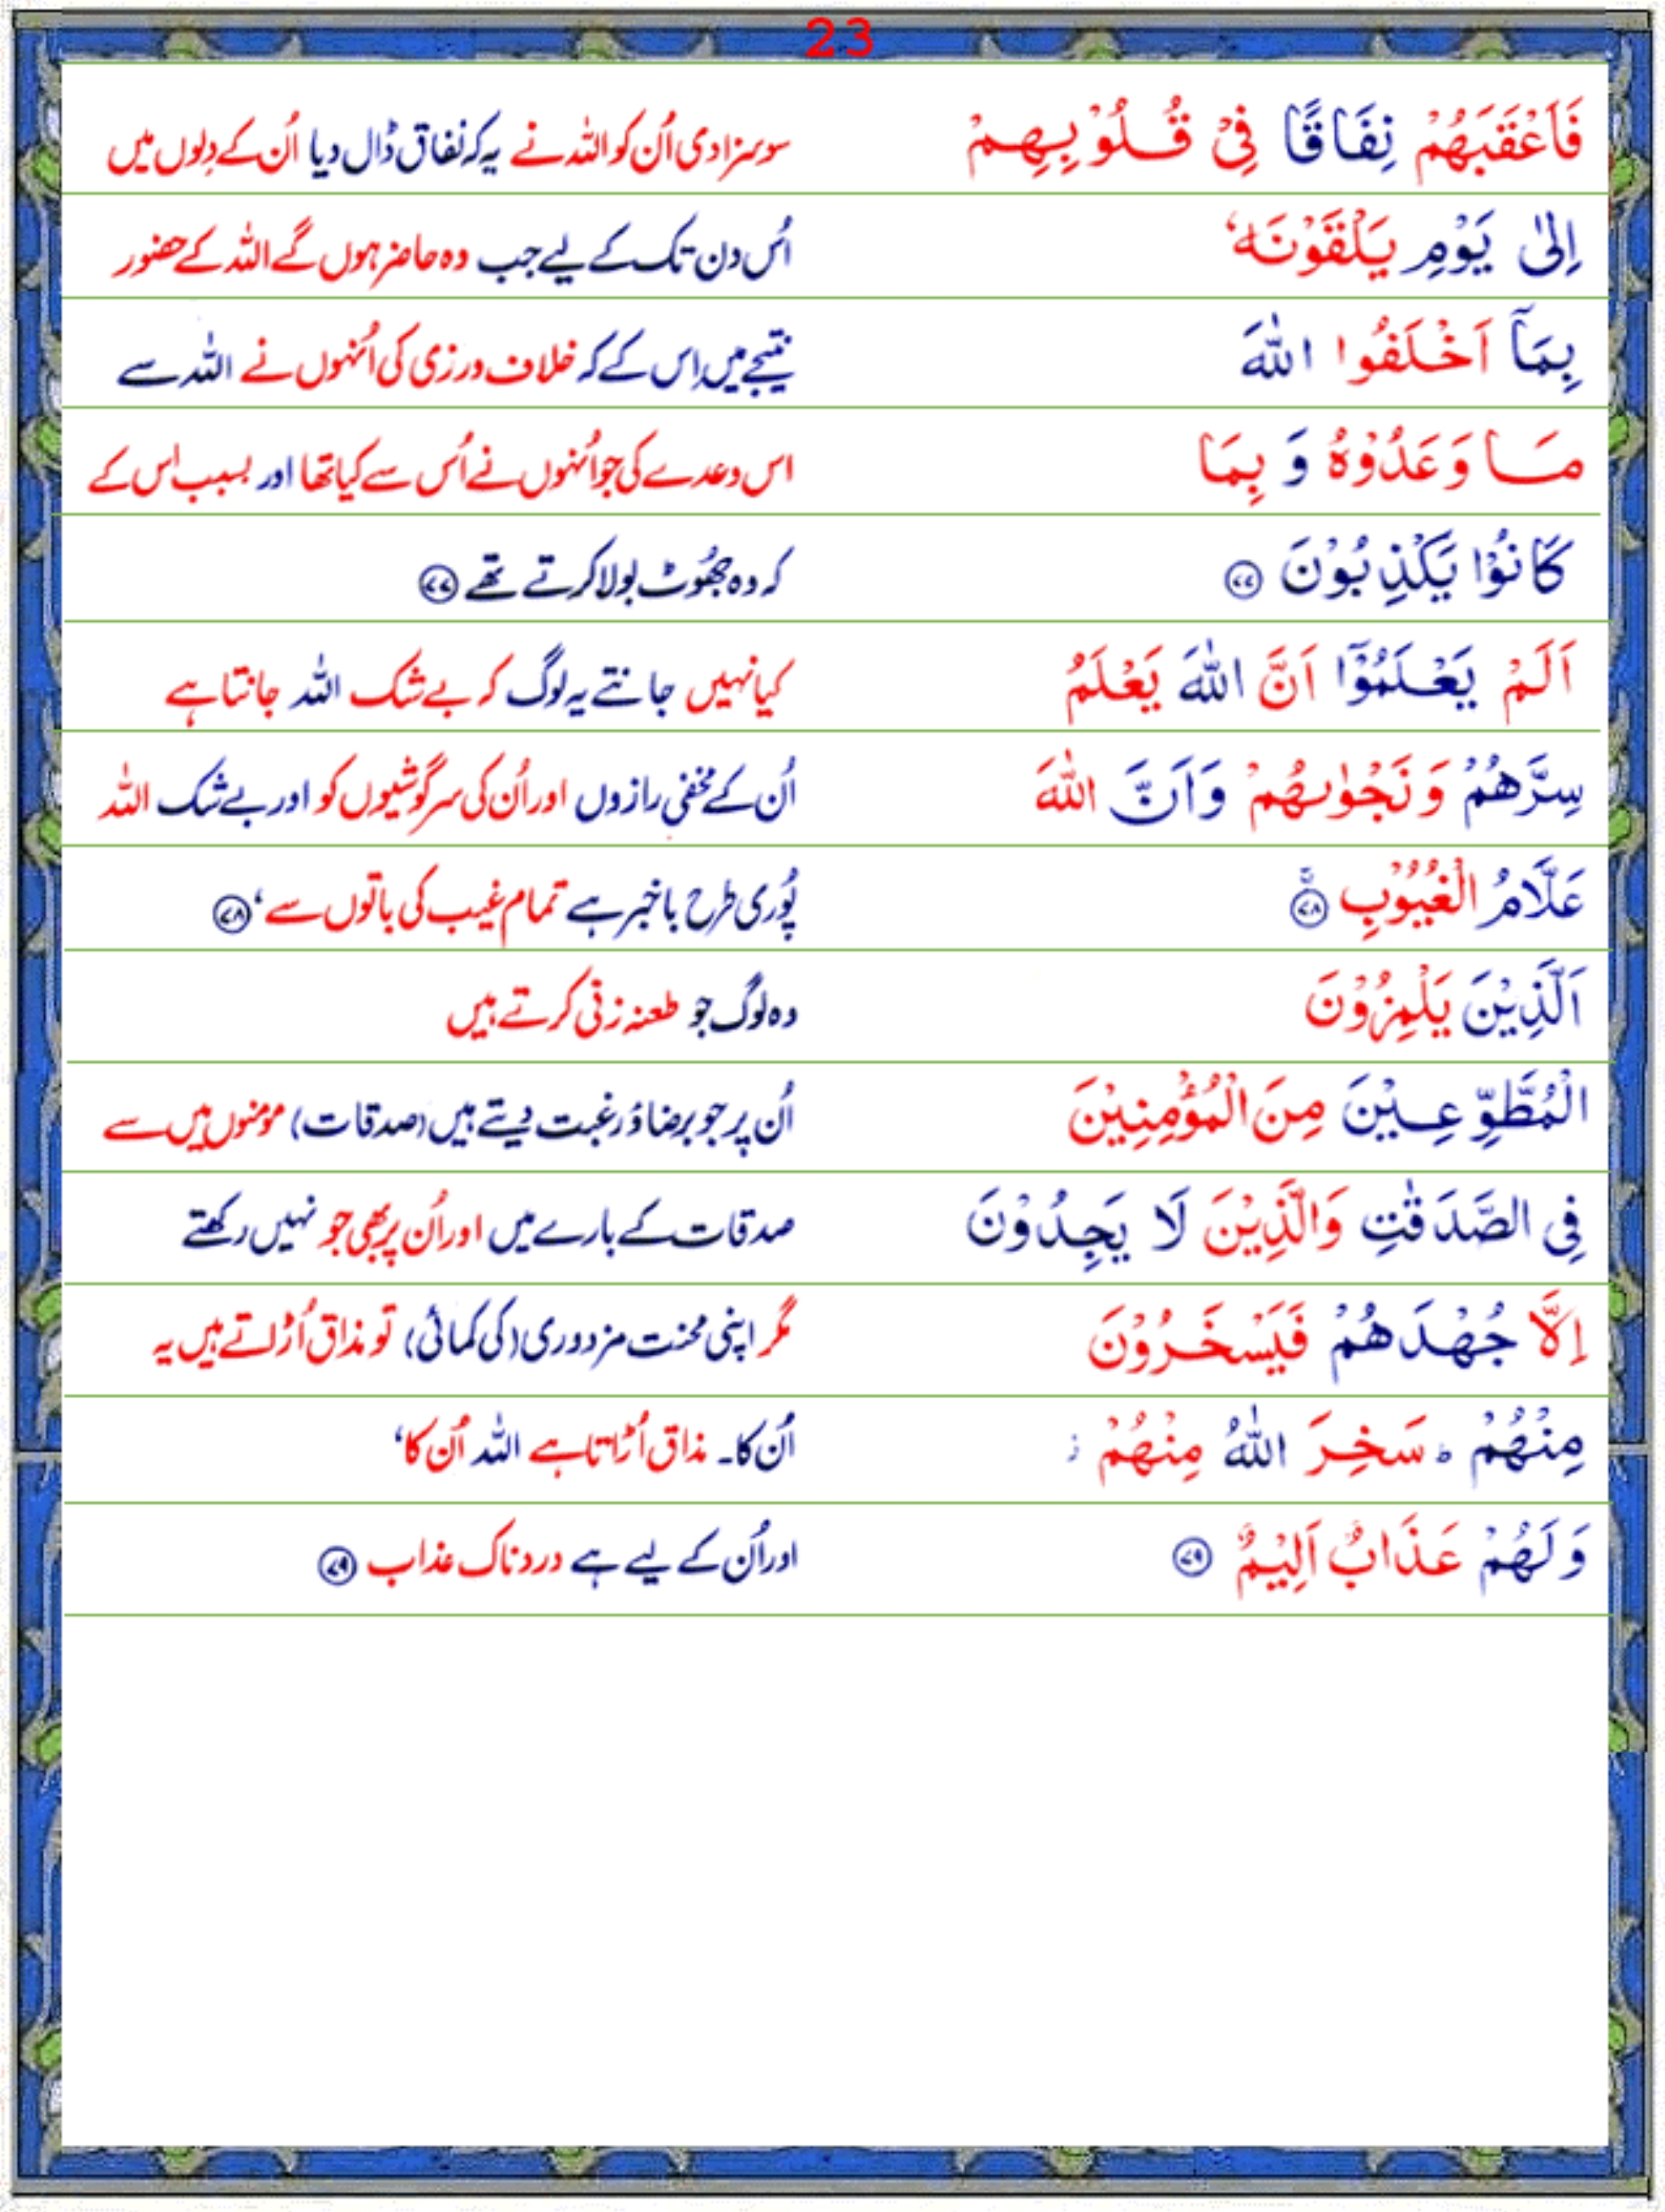 23
فَاَعْقَبَهُمْ نِفَاقًا فِیْ قُلُوْبِهِمْ سو سزا دی اُن کو اللہ نے یہ کہ نفاق ڈال دیا اُن کے دِلوں میں
اِلٰی یَوْمِ یَلْقَوْنَهٗ اُس دن تک کے لیے جب وہ حاضر ہوں گے اللہ کے حضور
بِمَاۤ اَخْلَفُوا اللّٰهَ نتیجے میں اِس کے کہ خلاف ورزی کی اُنہوں نے اللہ سے
مَا وَعَدُوْهُ وَ بِمَا اس وعدے کی جو اُنہوں نے اُس سے کیا تھا اور بسبب اس کے
کَانُوْا یَکْذِبُوْنَ ۷۷ کہ وہ جھُوٹ بولا کرتے تھے ۷۷
اَلَمْ یَعْلَمُوْۤا اَنَّ اللّٰهَ یَعْلَمُ کیا نہیں جانتے یہ لوگ کہ بے شک اللہ جانتا ہے
سِرَّهُمْ وَ نَجْوٰىهُمْ وَاَنَّ اللّٰهَ اُن کے مخفی رازوں اور اُن کی سرگوشیوں کو اور بے شک اللہ
عَلَّامُ الْغُیُوْبِ ۷۸ پُوری طرح باخبر ہے تمام غیب کی باتوں سے، ۷۸
اَلَّذِیْنَ یَلْمِزُوْنَ وہ لوگ جو طعنہ زنی کرتے ہیں
الْمُطَّوِّعِیْنَ مِنَ الْمُؤْمِنِیْنَ اُن پر جو برضا و رغبت دیتے ہیں (صدقات) مومنوں میں سے
فِی الصَّدَقٰتِ وَالَّذِیْنَ لَا یَجِدُوْنَ صدقات کے بارے میں اور اُن پر بھی جو نہیں رکھتے
اِلَّا جُهْدَهُمْ فَیَسْخَرُوْنَ مگر اپنی محنت مزدوری (کی کمائی) تو مذاق اُڑاتے ہیں یہ
مِنْهُمْ ؕ سَخِرَ اللّٰهُ مِنْهُمْ ؗ اُن کا۔ مذاق اُڑاتا ہے اللہ اُن کا،
وَلَهُمْ عَذَابٌ اَلِیْمٌ ۷۹ اور اُن کے لیے ہے دردناک عذاب ۷۹